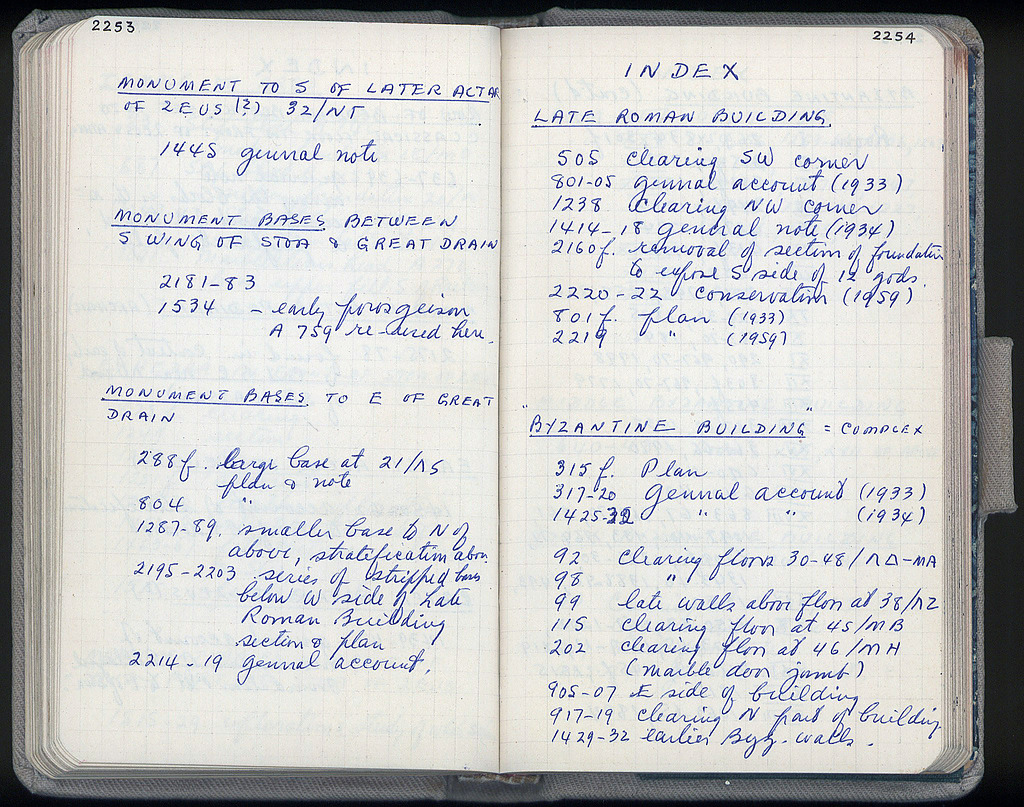 2253
MONUMENT TO S OF LATER ALTAR
OF ZEUS (?) 32/ΝΓ
1445 general note
MONUMENT BASES BETWEEN
S WING OF STOA & GREAT DRAIN
2181-83
1534 - early poros geison
A 759 re-used here.
MONUMENT BASES TO E OF GREAT
DRAIN
288f. large base at 21/ΛS
plan & note
804 "
1287-89. smaller base to N of
above, stratification above
2195-2203 series of stripped bases
below W side of Late
Roman Building
section & plan
2214-19 general account.
2254
INDEX
LATE ROMAN BUILDING
505 clearing SW corner
801-05 general account (1933)
1238 clearing NW corner
1414-18 general note (1934)
2160f. removal of section of foundation
to expose S side of 12 gods.
2220-22 conservation (1959)
801f. plan (1933)
2219 " (1959)
"BYZANTINE BUILDING" = COMPLEX
315f. Plan
317-20 General account (1933)
1425-32 " " (1934)
92 clearing floors 30-48/ΛΔ-ΜΑ
98 "
99 late walls above floor at 38/ΛΖ
115 clearing floor at 45/ΜΒ
202 clearing floor at 46/ΜΗ
(marble door jamb)
905-07 E side of building
917-19 clearing N part of building
1429-32 earlier Byz. walls.